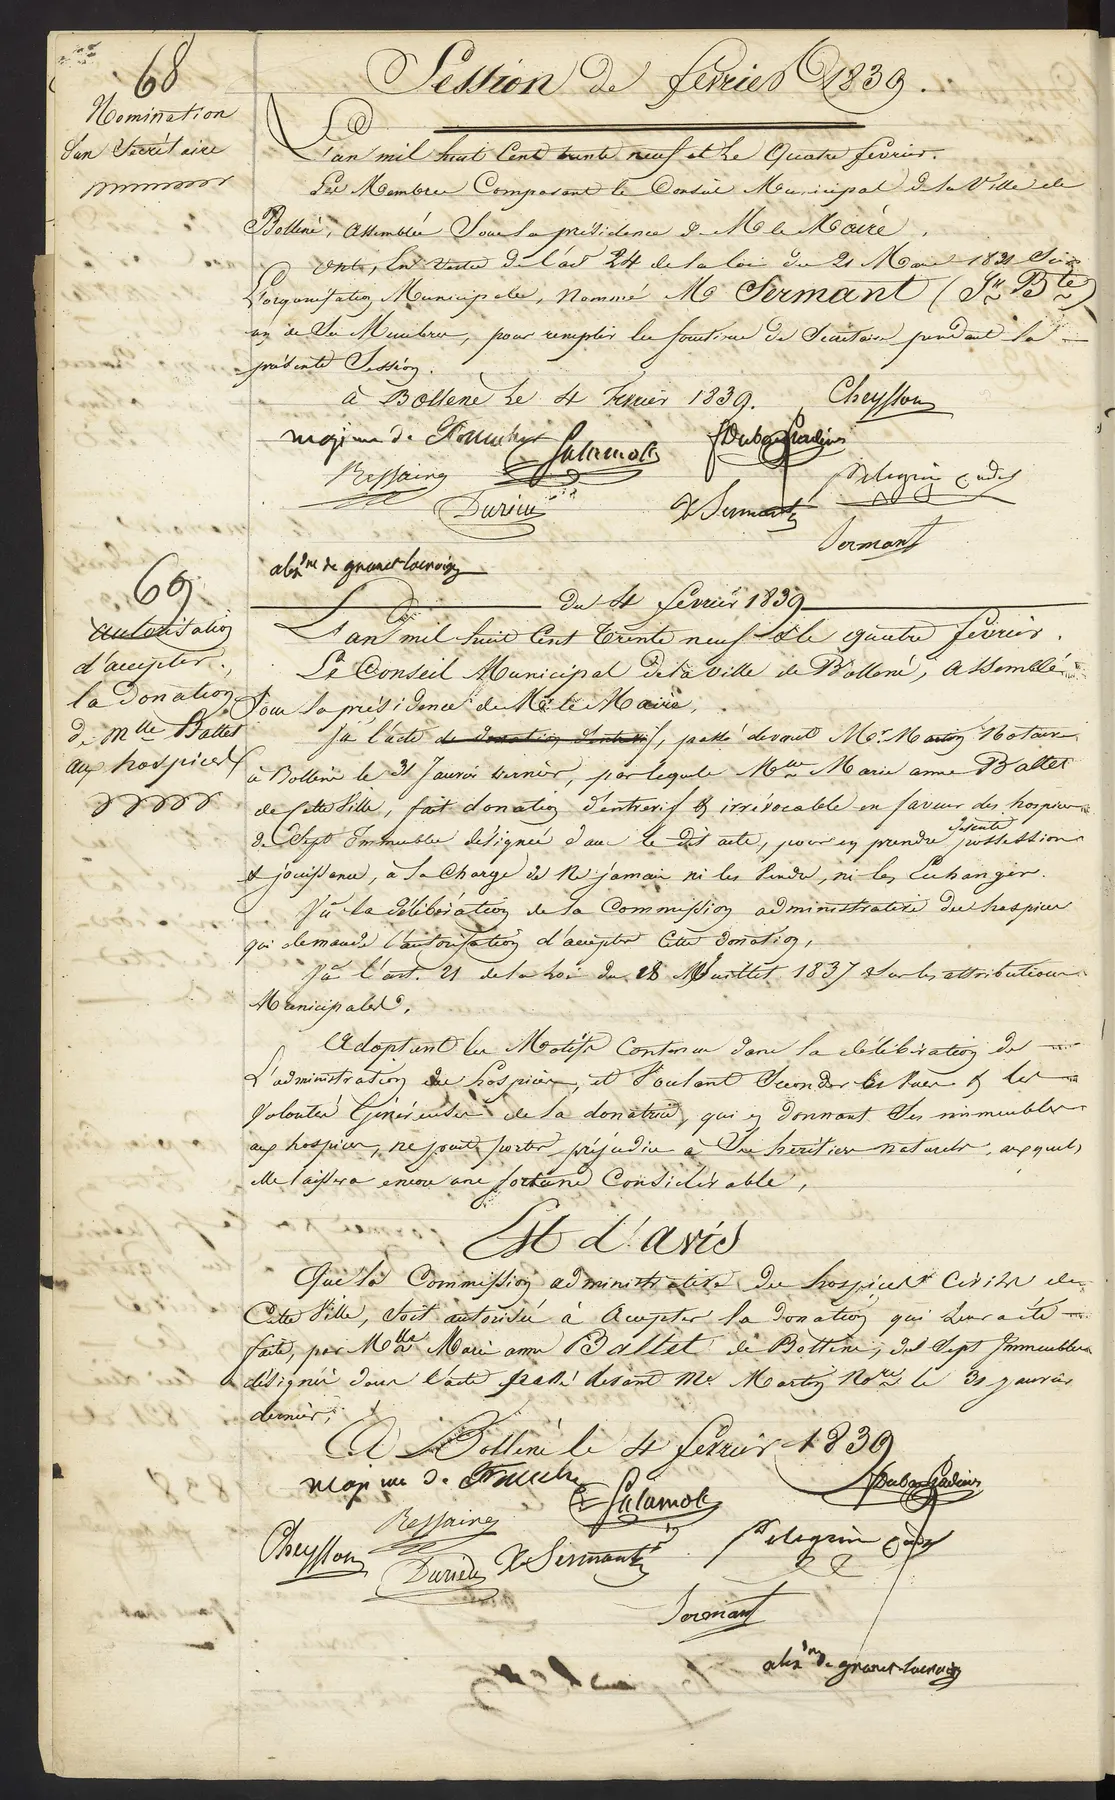 68
Nomination
d'un Secrétaire
Session de février 1839.
L'an mil huit Cent trente neuf et le Quatre février.
Les Membres Composant le Conseil Municipal de la Ville de
Bollène, assemblés Sous la présidence de Mr le Maire,
ont, En vertu de l'art 24 de la loi du 21 Mars 1831 Sur
L'organisation Municipale, nommé Mr Sermant (Jn Bte)
un de Ses Membres, pour remplir les fonctions de Secrétaire pendant la
présente Session.
à Bollène le 4 février 1839.
Cheysson
Salamon
Ressaire
Durieu
X Sermant
Pelegrin
Sermant
alexdre de granet lacroix
69
autorisation
d'accepter
la donation
de Mlle Baltet
aux hospices
du 4 février 1839
L'an mil huit Cent trente neuf & le quatre février.
Le Conseil Municipal de la ville de Bollène, assemblé
Sous la présidence de Mr le Maire,
Vu l'acte de donation d'entrevif, passé devant Me Martin Notaire
à Bollène le 31 Janvier dernier, par lequel Mlle Marie anne Baltet
de cette Ville, fait donation d'entrevif & irrévocable en faveur des hospices
de Sept Immeubles désignés dans le dit acte, pour en prendre de suite possession
& jouissance, à la Charge de Ne jamais ni les Vendre, ni les Echanger.
Vu la délibération de la Commission administrative des hospices
qui demande l'autorisation d'accepter Cette donation,
Vu l'art. 21 de la Loi du 18 Juillet 1837 Sur les attributions
Municipales,
Adoptant les Motifs Contenus dans la délibération de
L'administration des hospices, et Voulant Seconder les Vues & les
Volontés Généreuses de la donatrice, qui en donnant Ses immeubles
aux hospices, ne peut porter préjudice à Ses héritiers naturels, auxquels
elle laissera encore une fortune Considérable,
Est d'avis
Que la Commission administrative des hospices Civils de
Cette Ville, Soit autorisée à Accepter la donation qui Leur a été
faite, par Mlle Marie anne Baltet de Bollène, des Sept Immeubles
désignés dans l'acte passé devant Me Martin Nore le 31 janvier
dernier,
A Bollène le 4 février 1839
Salamon
Ressaire
Cheysson
Durieu
X Sermant
Pelegrin
Sermant
alexdre de granet lacroix